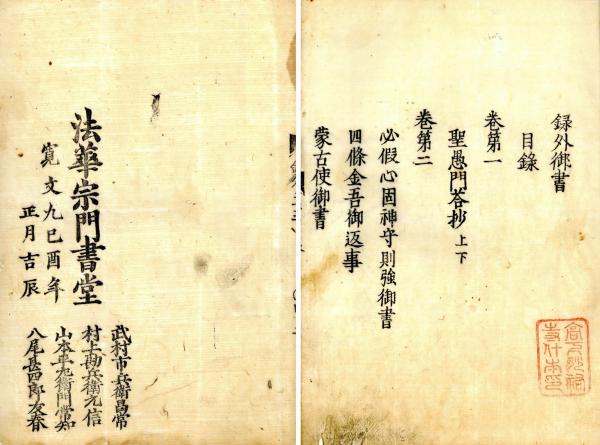 録外御書
目錄
卷第一
聖愚問荅抄 上下
卷第二
必假心固神守則強御書
四條金吾御返事
蒙古使御書
法華宗門書堂
寛文九己酉年
正月吉辰
武村市兵衛昌常
村上勘兵衛元信
山本平左衛門常知
八尾甚四郎友春